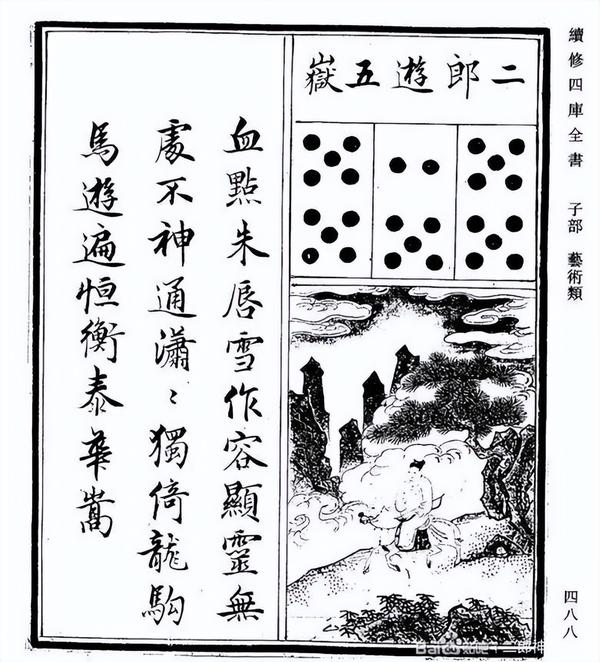 續修四庫全書 子部 藝術類
四八八
二郎遊五嶽
血點朱唇雪作容顯靈無
處不神通瀟〻獨倚龍駒
馬遊遍恒衡泰華嵩
Baidu贴吧
二郎神